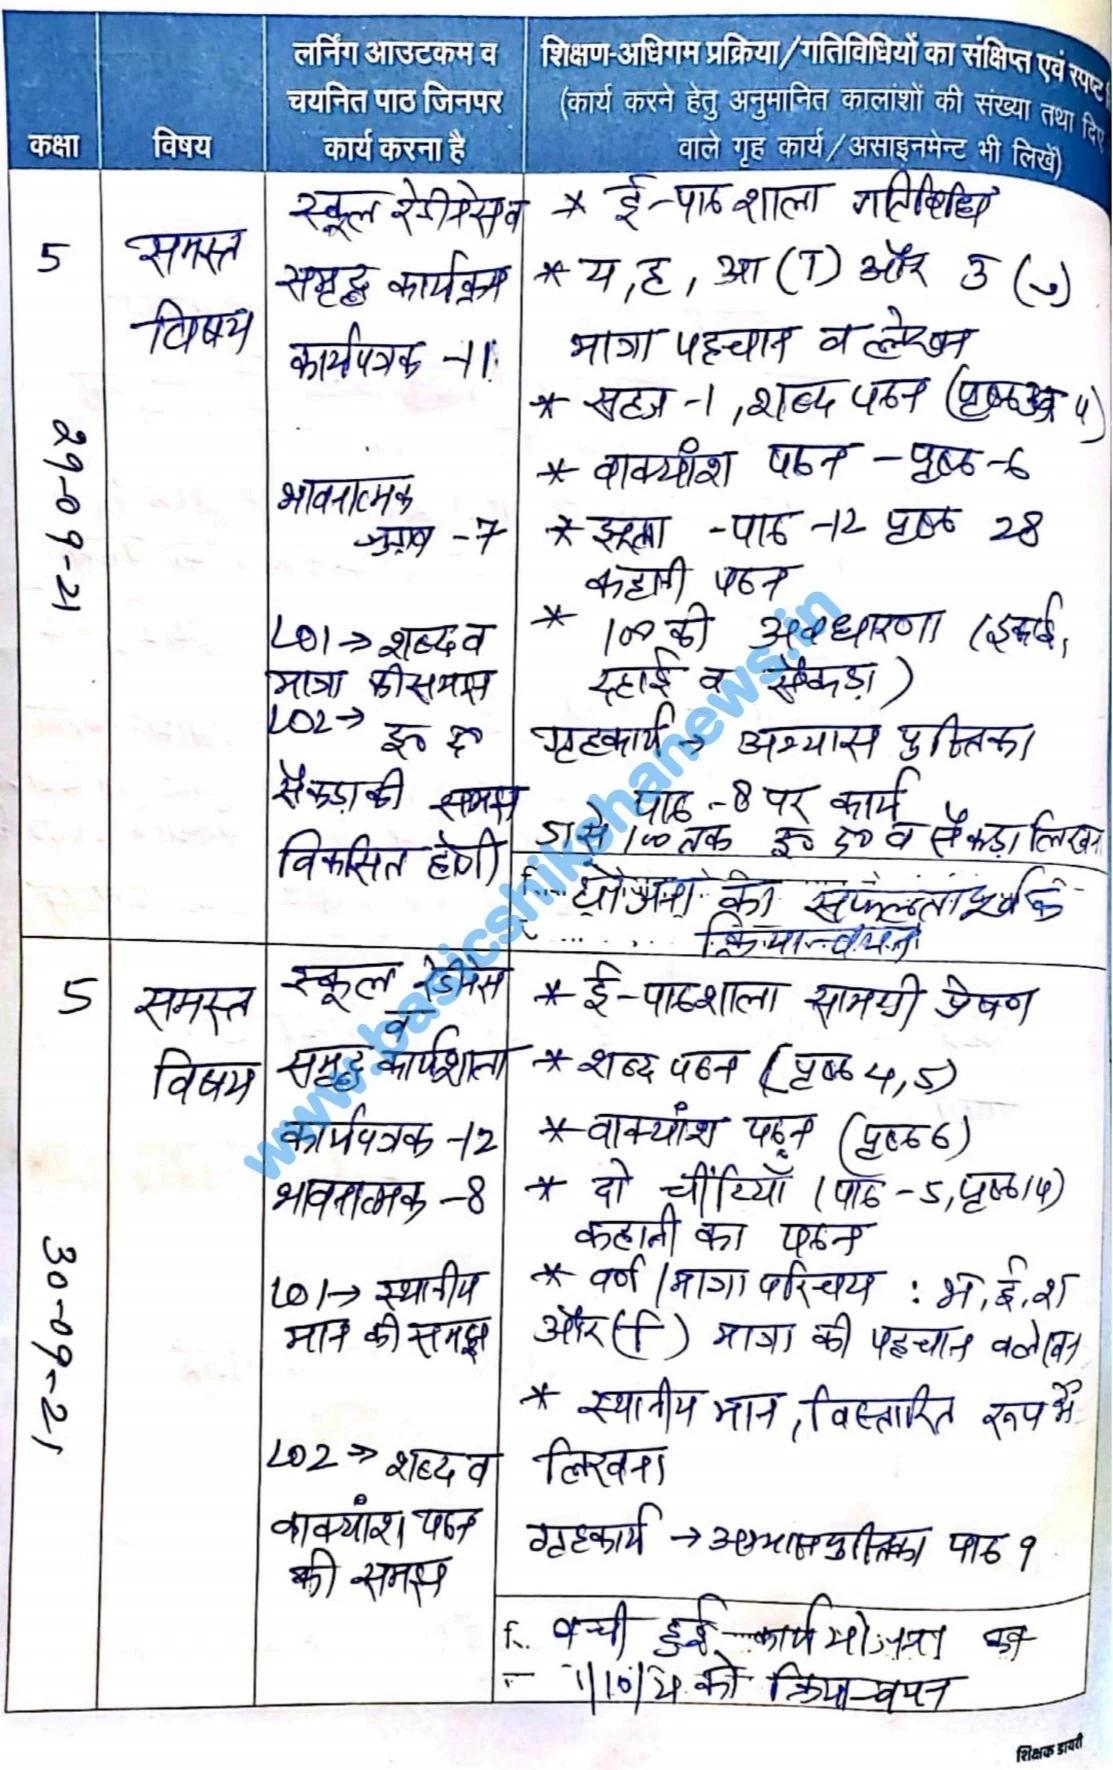 कक्षा
विषय
लर्निंग आउटकम व
चयनित पाठ जिनपर
कार्य करना है
शिक्षण-अधिगम प्रक्रिया/गतिविधियों का संक्षिप्त एवं स्पष्ट
(कार्य करने हेतु अनुमानित कालांशों की संख्या तथा दिए
वाले गृह कार्य/असाइनमेन्ट भी लिखें)
5
29-09-21
समस्त
विषय
स्कूल रेडीनेस व
समृद्ध कार्यक्रम
कार्यपत्रक -11
भावनात्मक
-7
LO1→ शब्द व
मात्रा की समझ
LO2→ इ० द०
सैकड़ा की समझ
विकसित होगी
* ई-पाठशाला गतिविधि
* य, ह, आ (ा) और उ (ु)
मात्रा पहचान व लेखन
* सहज -1, शब्द पठन (पृष्ठ 4)
* वाक्यांश पठन - पृष्ठ -6
* झूला - पाठ -12 पृष्ठ 28
कहानी पठन
* 100 की अवधारणा (इकाई,
दहाई व सैकड़ा)
गृहकार्य → अभ्यास पुस्तिका
पाठ -8 पर कार्य
51 से 100 तक इ० द० व सैकड़ा लिखना
योजना की सफलतापूर्वक
क्रियान्वयन
5
30-09-21
समस्त
विषय
स्कूल रेडीनेस
व
समृद्ध कार्यशाला
कार्यपत्रक -12
भावनात्मक -8
LO1→ स्थानीय
मान की समझ
LO2→ शब्द व
वाक्यांश पठन
की समझ
* ई-पाठशाला सामग्री प्रेषण
* शब्द पठन (पृष्ठ 4,5)
* वाक्यांश पठन (पृष्ठ 6)
* दो चींटियाँ (पाठ -5, पृष्ठ 14)
कहानी का पठन
* वर्ण/मात्रा परिचय : भ, ई, श
और (ि) मात्रा की पहचान व लेखन
* स्थानीय मान, विस्तारित रूप में
लिखना
गृहकार्य → अभ्यास पुस्तिका पाठ 9
बची हुई कार्ययोजना का
1/10/21 को क्रियान्वयन
शिक्षक डायरी
www.basicshikshanews.in